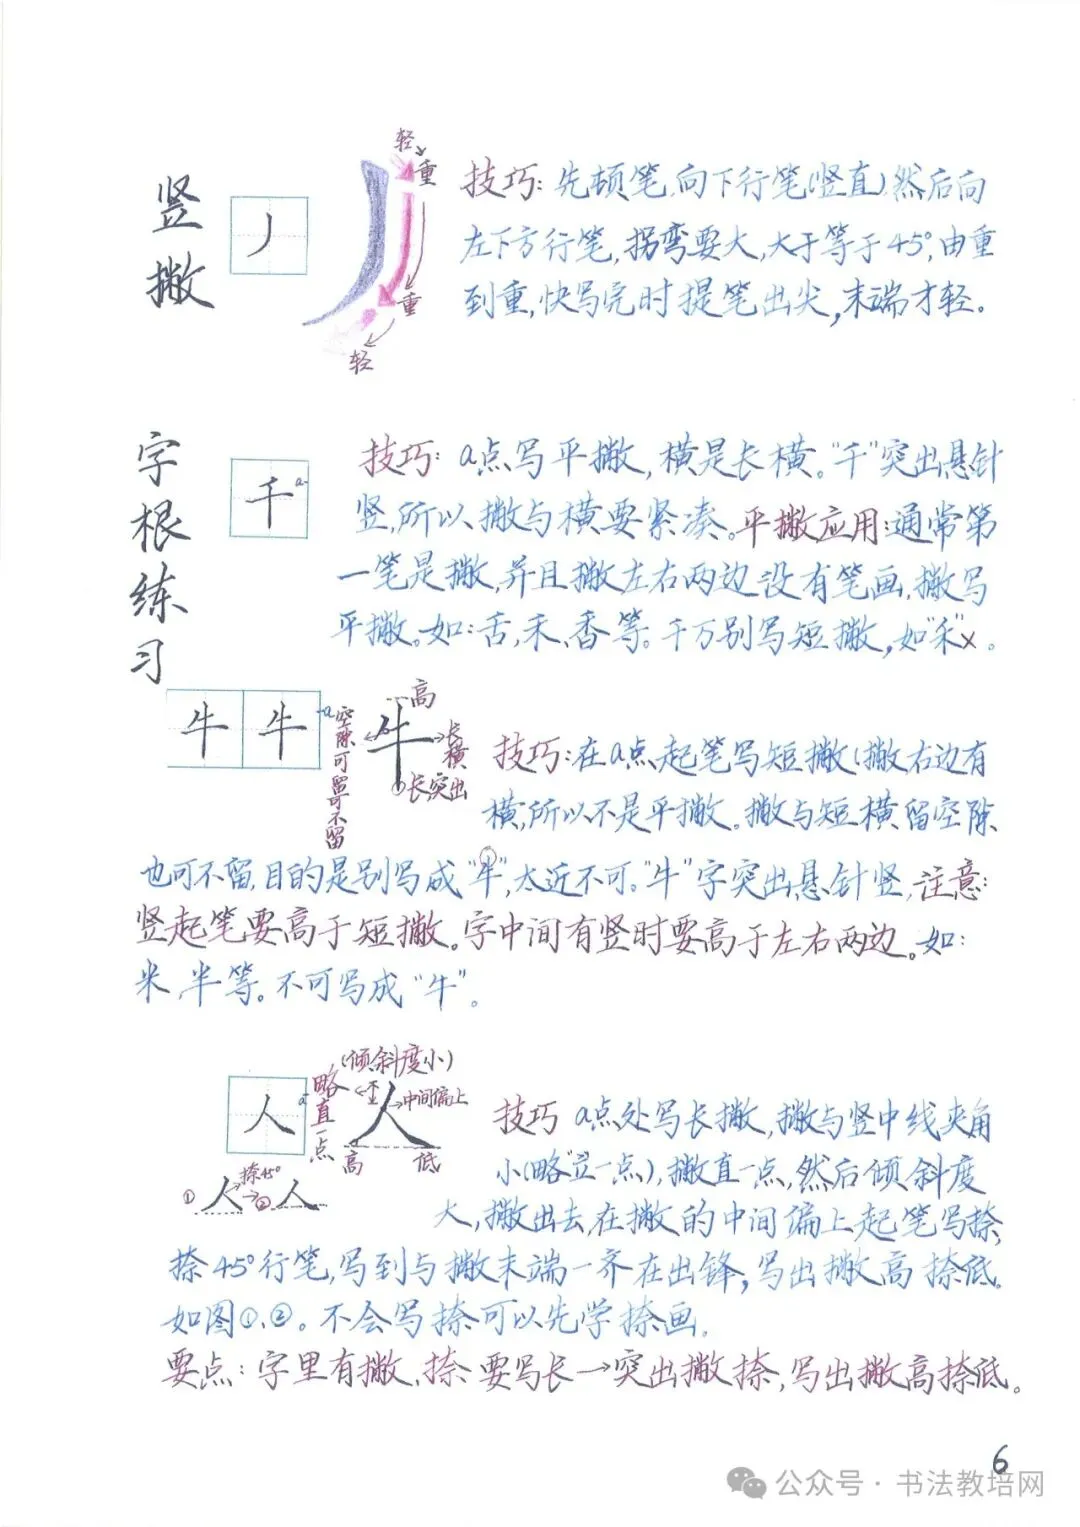 竖撇
轻
重
重
轻
技巧:先顿笔,向下行笔(竖直),然后向
左下方行笔,拐弯要大,大于等于45°,由重
到重,快写完时提笔出尖,末端才轻。
字根练习
千a
技巧:a点写平撇,横是长横。"千"突出悬针
竖,所以撇与横要紧凑。平撇应用:通常第
一笔是撇,并且撇左右两边没有笔画,撇写
平撇。如:舌,禾、香等。千万别写短撇,如"禾"x。
牛 牛 a
空隙可留可不留
高
牛
长横
①长突出
技巧:在a点起笔写短撇(撇右边有
横,所以不是平撇。撇与短横留空隙
也可不留,目的是别写成"牛",太近不可。"牛"字突出悬针竖,注意:
竖起笔要高于短撇。字中间有竖时要高于左右两边。如:
米、半等。不可写成"牛"。
人a
略直一点
(倾斜度小)
中间偏上
人
高 低
捺45°
①人→②人
技巧 a点处写长撇,撇与竖中线夹角
小(略立一点),撇直一点,然后倾斜度
大,撇出去,在撇的中间偏上起笔写捺,
捺45°行笔,写到与撇末端一齐在出锋,写出撇高捺低。
如图①、②。不会写捺可以先学捺画。
要点:字里有撇、捺要写长→突出撇捺,写出撇高捺低。
6
公众号·书法教培网